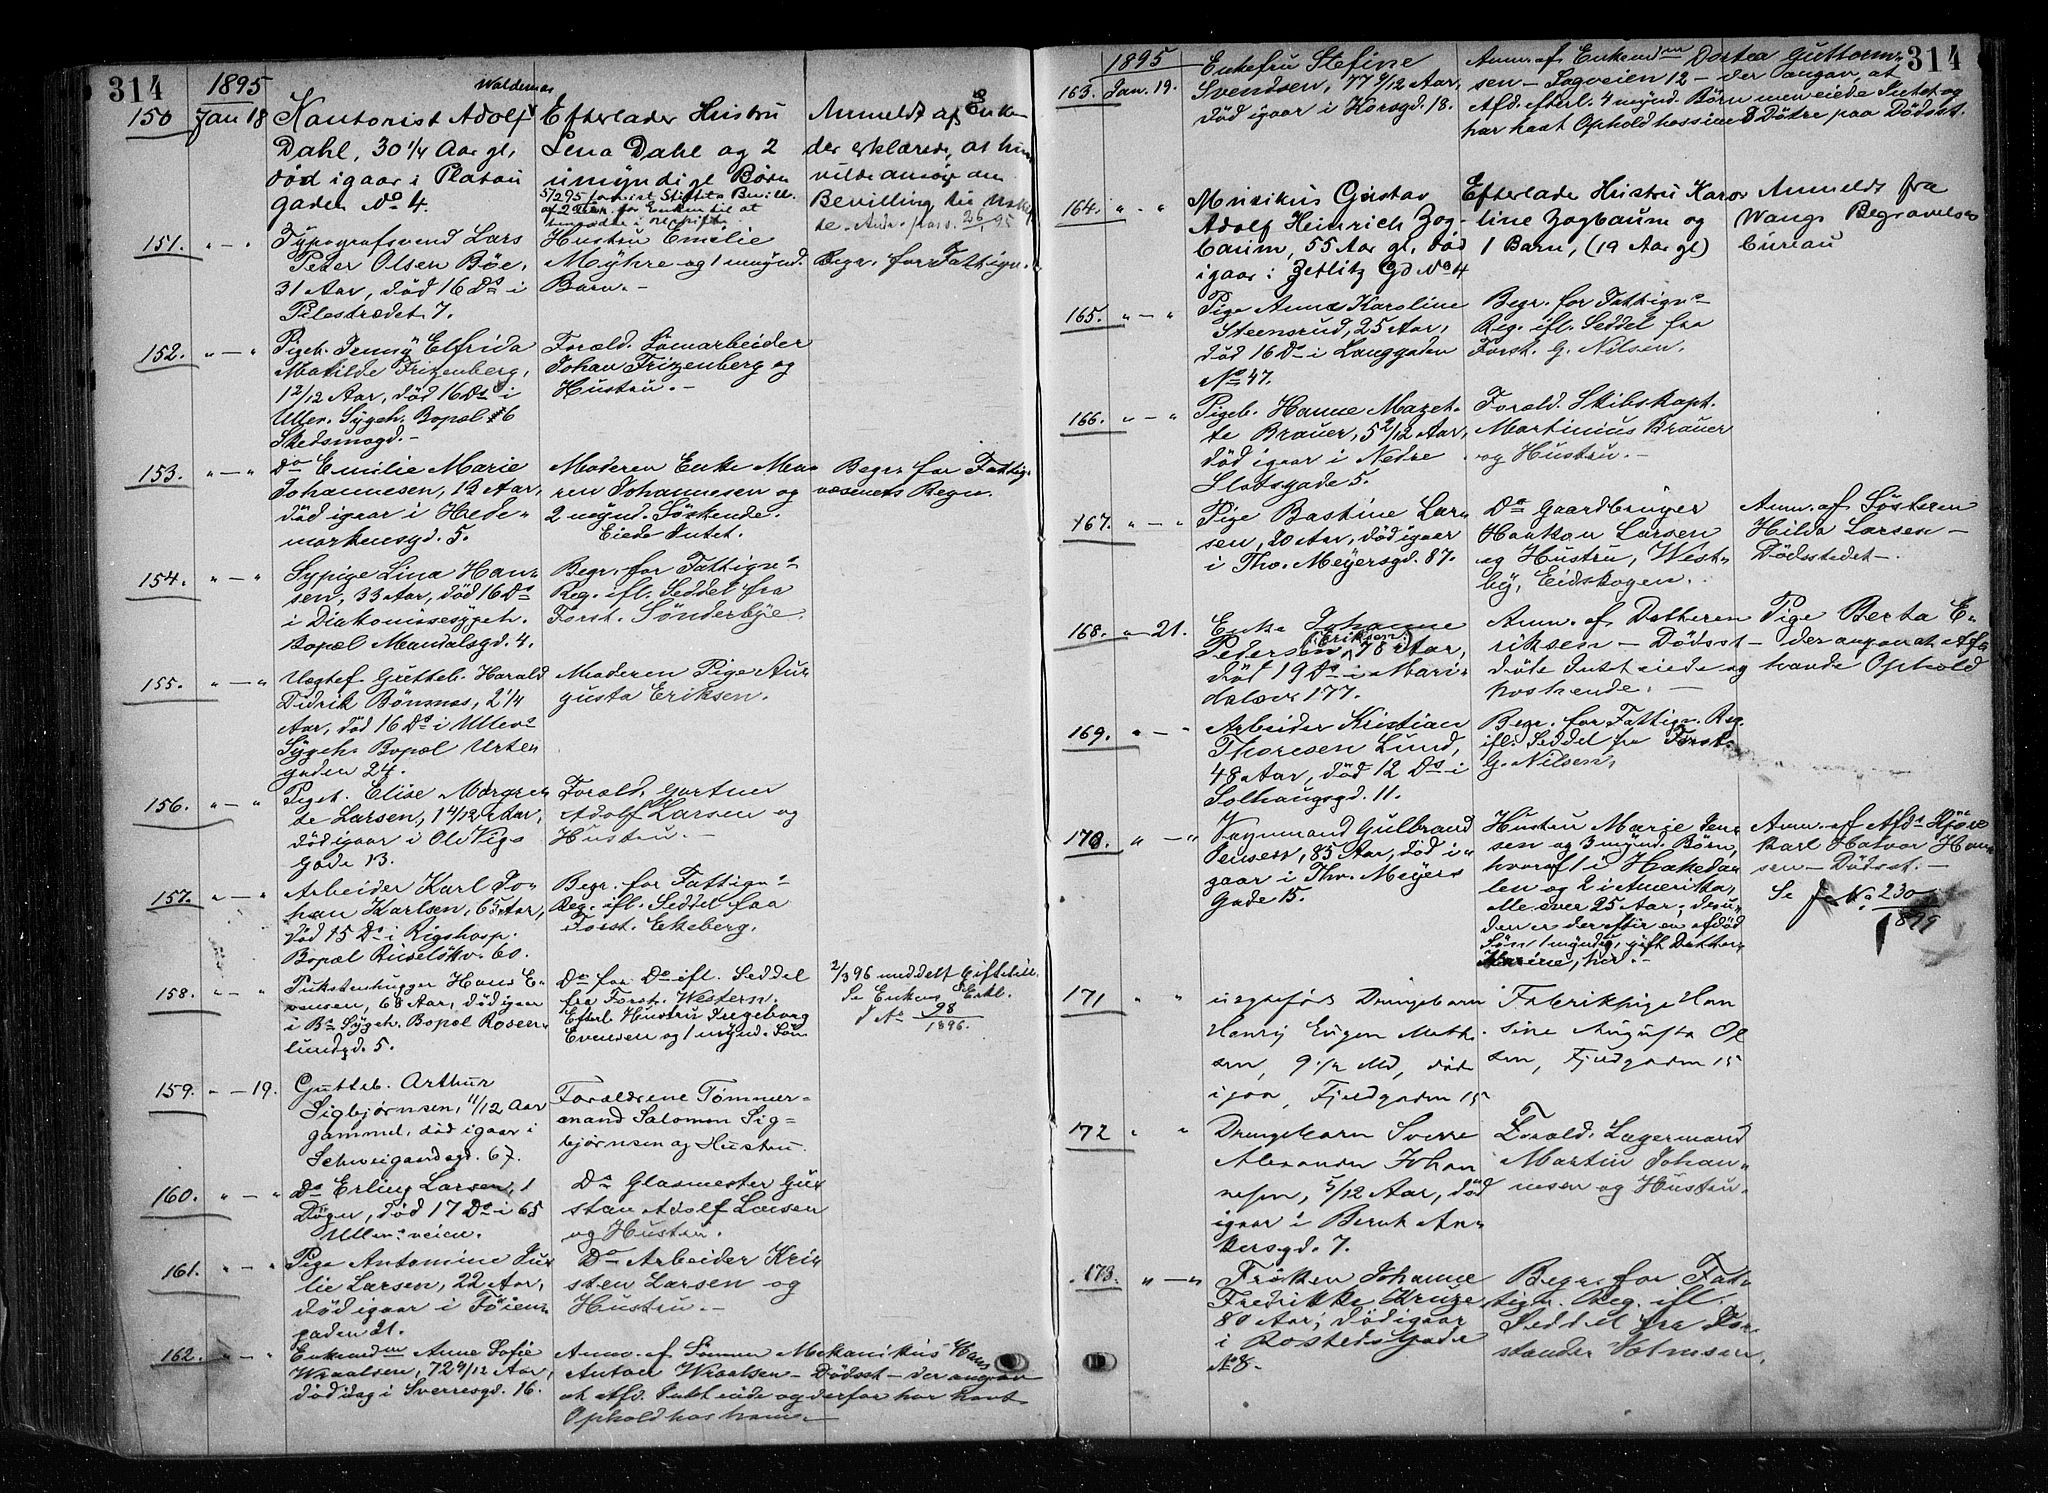 314
1895
150
Jan 18
Waldemar
Kontorist Adolf
Dahl, 30 1/4 Aar gl,
død igaar i Platou
gaden No 4.
Efterlader Hustru
Lena Dahl og 2
umyndige Børn
Anmeldt af Enken
der erklærede, at hun
vilde ansøge om
Bevilling til
151.
" - "
Typografsvend Lars
Peder Olsen Bøe,
31 Aar, død 16 Ds i
Pilestrædet 7.
Hustru Emelie
Myhre og 1 mynd.
Barn. -
Begr. for Fattigv.
152.
" - "
Pigeb. Jenny Elfrida
Matilde Frizenberg,
1 2/12 Aar, død 16 Ds i
Ullev. Sygeh. Bopæl 6
Skedsmogd. -
Foræld. Sømarbeider
Johan Frizenberg og
Hustru. -
153.
" - "
Do Emilie Marie
Johannesen, 12 Aar,
død igaar i Hede-
markensgd. 5.
Moderen Enke Ma-
ren Johannesen og
2 mynd. Søskende.
Eiede Intet.
Begr. for Fattig-
væsenets Regn.
154.
" - "
Sypige Lina Han-
sen, 33 Aar, død 16 Ds
i Diakonissesygeh.
Bopæl Mandalsgd. 4.
Begr. for Fattigvs
Reg. ifl. Seddel fra
Forst. Sønderbye.
155.
" - "
Uægtef. Gutteb. Harald
Didrik Bønsnes, 2 1/4
Aar, død 16 Ds i Ullevs
Sygeh. Bopæl Urte-
gaden 24.
Moderen Pige Au-
gusta Eriksen.
156.
" - "
Pigeb. Elise Margre-
te Larsen, 1 4/12 Aar,
død igaar i Ole Vigs
Gade 13.
Foræld. Gartner
Adolf Larsen og
Hustru. -
157.
" - "
Arbeider Karl Jo-
han Karlsen, 65 Aar,
død 15 Ds i Rigshosp.
Bopæl Ruseløkv. 60.
Begr. for Fattigvs
Reg. ifl. Seddel fra
Forst. Ekeberg.
158.
" - "
Pukstenhugger Hans E-
vensen, 68 Aar, død igaar
i Bs Sygeh. Bopæl Rosen-
lundgd. 5.
Do for Do ifl. Seddel
fra Forst. Western.
Efterl. Hustru Ingeborg
Evensen og 1 mynd. Søn
2/3 96 meddelt Giftetill.
Se Enkens Erkl.
J No 98
1896.
159.
" - 19.
Gutteb. Arthur
Sigbjørnsen, 11/12 Aar
gammel, død igaar i
Schweigaardsgd. 67.
Forældrene Tømmer-
mand Salomon Sig-
bjørnsen og Hustru.
160.
" - "
Do Erling Larsen, 1
Døgn, død 17 Ds i 65
Ullev. veien.
Do Glasmester Gu-
stav Adolf Larsen
og Hustru.
161.
" - "
Pige Antomine Ju-
lie Larsen, 22 Aar,
død igaar i Tøien-
gaden 21.
Do Arbeider Kri-
sten Larsen og
Hustru. -
162.
" - "
Enkemadm Anne Sofie
Wraalsen, 72 9/12 Aar,
død idag i Sverresgd. 16.
Anm. af Sønnen Mekanikus Hans
Anton Wraalsen - Dødsst - der angav
at Afd. Intet eiede og derfor har havt
Ophold hos ham. -
314
1895
163.
Jan. 19.
Enkefru Stefine
Svendsen, 77 9/12 Aar,
død igaar i Korsgd. 18.
Anm. af Enkemadm Dortea Guttorm-
sen - Sogveien 12 - der angav, at
Afd. efterl. 4 mynd. Børn men eiede Intet og
har havt Ophold hos sine Døtre paa Dødsst.
164.
" - "
Musikus Gustav
Adolf Heinrich Zog-
baum, 55 Aar gl, død
igaar i Zetlitz Gd No 4
Efterlade Hustru Karo-
line Zogbaum og
1 Barn, (19 Aar gl)
Anmeldt fra
Wangs Begravelses
bureau
165.
" - "
Pige Anna Karoline
Steensrud, 25 Aar,
død 16 Ds i Langgaden
No 47.
Begr. for Fattigvs
Reg. ifl. Seddel fra
Forst. G. Nilsen.
166.
" - "
Pigeb. Hanne Maget-
te Brauer, 5 2/12 Aar,
død igaar i Nedre
Slotsgade 5.
Foræld. Skibskapt.
Martinius Brauer
og Hustru. -
167.
" - "
Pige Bastine Lar-
sen, 20 Aar, død igaar
i Thv. Meyersgd. 87.
Do Gaardbruger
Haakon Larsen
og Hustru, West-
by, Eidskogen.
Anm. af Søsteren
Hilda Larsen -
Dødsstedet -.
168.
" - 21.
Enke Johanne
Pedersen (Eriksen), 78 Aar,
død 19 Ds i Mari-
dalsv. 177.
Anm. af Datteren Pige Berta E-
riksen - Dødsst - der angav at Afd.
døde Intet eiede og havde Ophold
hos hende. -
169.
" - "
Arbeider Kristian
Thoresen Lund,
48 Aar, død 12 Ds i
Solhaugsgd. 11.
Begr. for Fattigv. Reg.
ifl. Seddel fra Forst.
G. Nilsen.
170.
" - "
Vognmand Gulbrand
Jensen, 85 Aar, død i-
gaar i Thv. Meyers
Gade 15.
Hustru Marie Jen-
sen og 3 mynd. Børn,
hvoraf 1 i Hakeda-
len og 2 i Amerika,
alle over 25 Aar; desu-
den er der efter en afdød
Søn 1 myndig, gift Datter
Marine, her. -
Anm. af Afds
Karl Halvor Han-
sen - Dødsst. -
Se J. No. 230
1899
171
" "
uægteføds Drengebarn
Henry Eugen Math-
sen, 9 1/2 Md, død
igaar, Fjeldgaden 15
Fabrikpige Han-
sine Augusta Ol-
sen, Fjeldgaden 15
172
" "
Drengebarn Sverre
Alexander Johan-
nesen, 5/12 Aar, død
igaar i Bernt An-
kersgd. 7.
Foræld. Lagermand
Martin Johan-
nesen og Hustru.
173.
" - "
Frøken Johanne
Fredrikke Kruze
80 Aar, død igaar
i Rosteds Gade
No 8.
Begr. for Fat-
tigv. Reg. ifl.
Seddel fra For-
stander Holmsen.